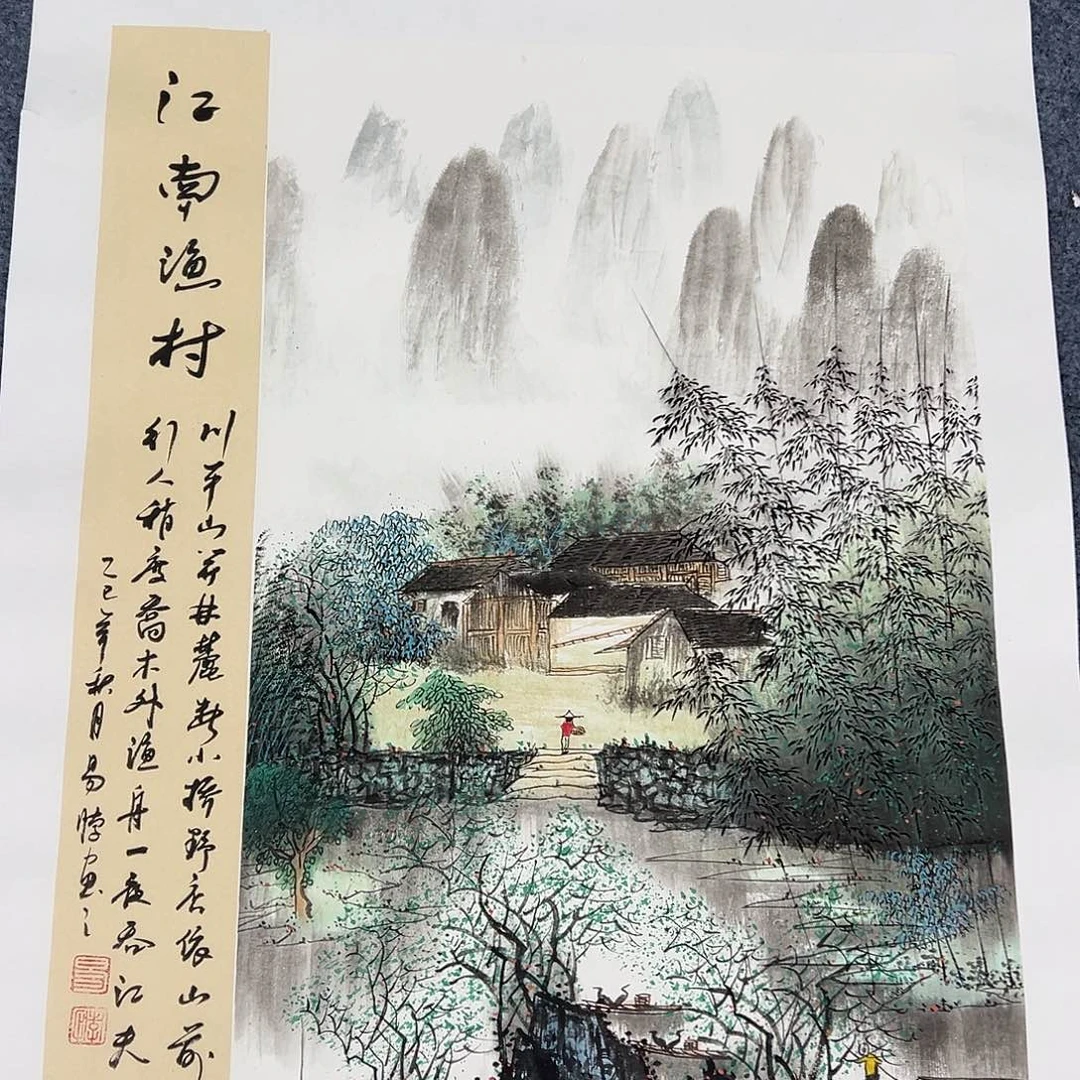 江南渔村
川平山开林麓断小桥野店依山前
行人稍度喬木外渔舟一吞江天
乙巳年秋月易画之
易